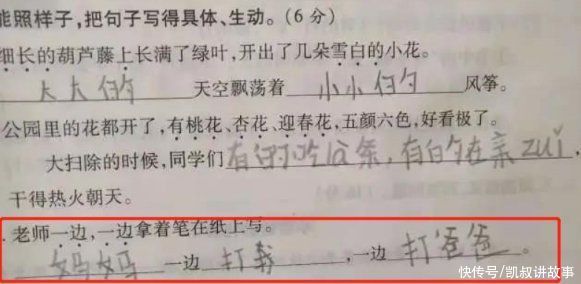 能照样子,把句子写得具体、生动。(6分)
细长的葫芦藤上长满了绿叶,开出了几朵雪白的小花。
大大的天空飘荡着小小的风筝。
公园里的花都开了,有桃花、杏花、迎春花,五颜六色,好看极了。
大扫除的时候,同学们有的吃谷条,有的在亲zuǐ,
干得热火朝天。
.老师一边,一边拿着笔在纸上写。
妈妈一边打我,一边打爸爸。
快传号/凯叔讲故事